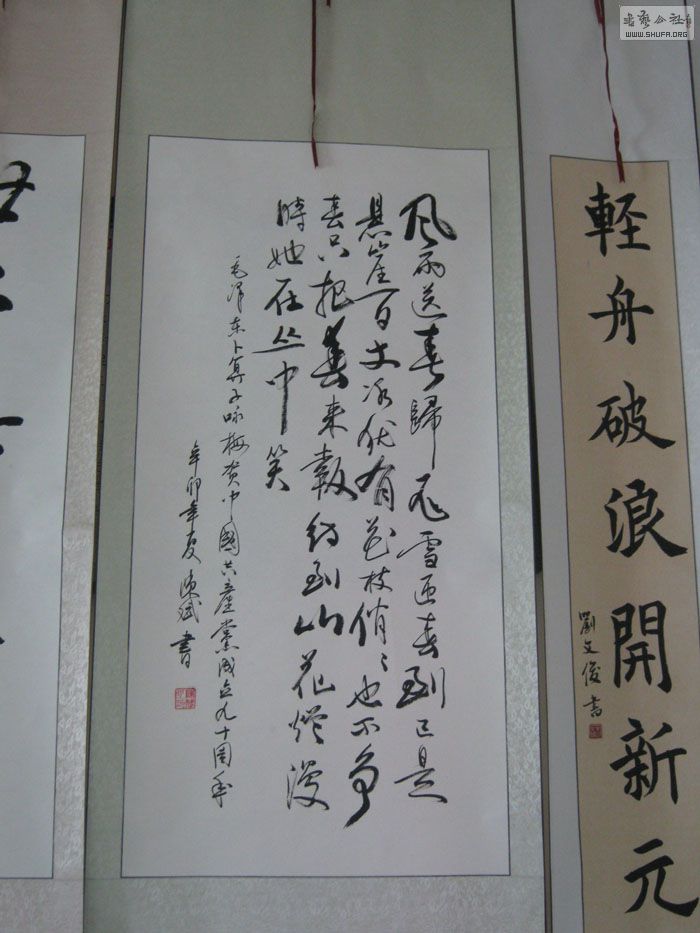 书艺公社
WWW.SHUFA.ORG
軽舟破浪開新元
劉文俊书
风雨送春歸飞雪迎春到已是
悬崖百丈冰犹有花枝俏俏也不争
春只把春来報待到山花烂漫
時她在丛中笑
毛泽东卜算子咏梅贺中國共產黨成立九十周年
辛卯年夏陈斌書